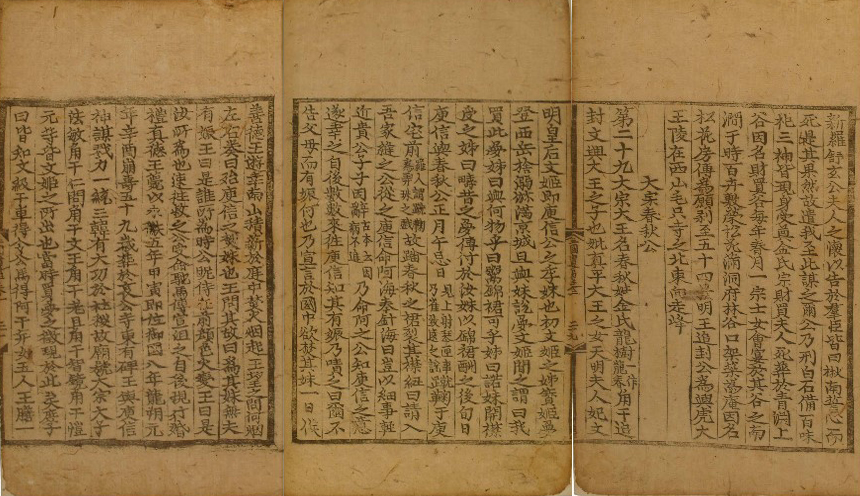 新羅舒玄公夫人之懷以告於羣臣皆曰楸南誓心而
死是其果然故遣我至此謀之爾公乃刑白石備百味
祀三神皆現身受奠金氏宗財買夫人死葬於青淵上
谷因名財買谷每年春月一宗士女會宴於其谷之南
澗于時百卉敷榮松花滿洞府林谷口架築為庵因名
松花房傳為願剎至五十四景明王追封公為興虎大
王陵在西山毛只寺之北東向走峰
大宗春秋公
第二十九大宗大王名春秋姓金氏龍樹一作龍春角干追
封文興大王之子也妣真平大王之女天明夫人妃文
明皇后文姬即庾信公之季妹也初文姬之姊寶姬夢
登西岳捨溺瀰滿京城旦與妹說夢文姬聞之謂曰我
買此夢姊曰與何物乎曰鬻錦裙可乎姊曰諾妹開襟
受之姊曰疇昔之夢傳付於汝妹以錦裙酬之後旬日
庾信與春秋公正月午忌日見上射琴匣事乃崔致遠之說蹴鞠于庾
信宅前羅人謂蹴鞠為弄珠之戲故踏春秋之裙裂其襟紐曰請入
吾家縫之公從之庾信命阿海奉針海曰豈以細事輕
近貴公子乎因辭古本云因病不進乃命阿之公知庾信之意
遂幸之自後數數來往庾信知其有娠乃嘖之曰爾不
告父母而有娠何也乃宣言於國中欲焚其妹一日俟
善德王遊幸南山積薪於庭中焚火烟起王望之問何烟
左右奏曰殆庾信之焚妹也王問其故曰為其妹無夫
有娠王曰是誰所為時公昵侍在前顏色大變王曰是
汝所為也速往救之公受命馳馬傳宣沮之自後現行婚
禮真德王薨以永徽五年甲寅即位御國八年龍朔元
年辛酉崩壽五十九歲葬於哀公寺東有碑王與庾信
神謀戮力一統三韓有大功於社稷故廟號大宗太子
法敏角干仁問角干文王角干老且角干智鏡角干愷
元等皆文姬之所出也當時買夢之徵現於此矣庶子
曰皆知文級干車得令公馬得阿干并女五人王膳一